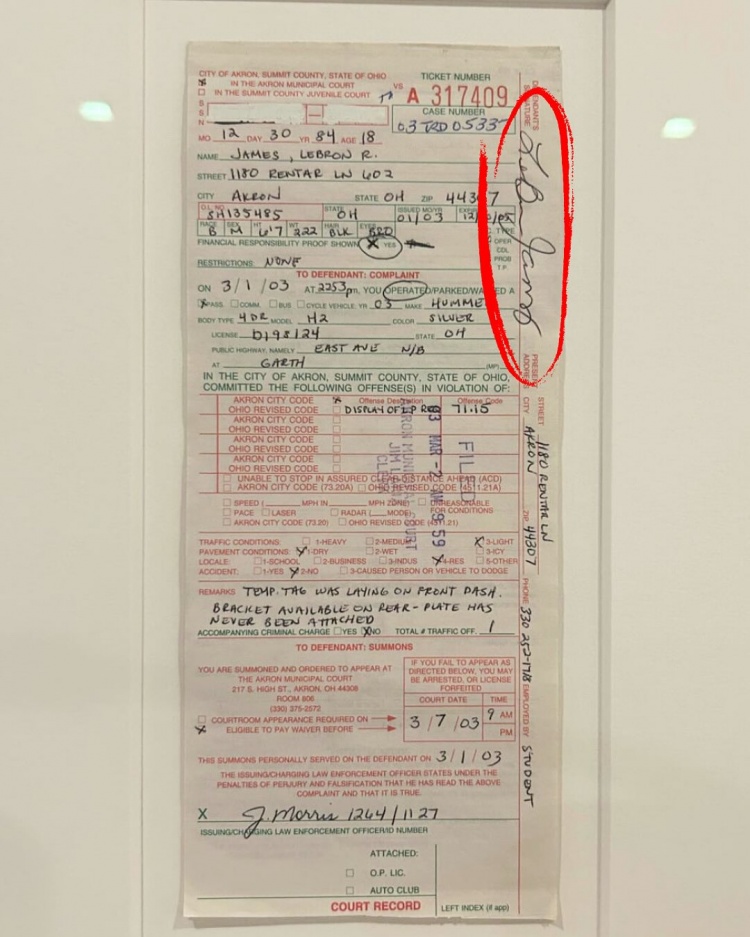 CITY OF AKRON, SUMMIT COUNTY, STATE OF OHIO
IN THE AKRON MUNICIPAL COURT
IN THE SUMMIT COUNTY JUVENILE COURT
VS
TICKET NUMBER
A 317409
CASE NUMBER
03 TRD 05337
S
S
N
MO. 12 DAY 30 YR 84 AGE 18
NAME JAMES, LEBRON R.
STREET 1180 RENTAR LN 602
CITY AKRON STATE OH ZIP 44307
O.L. NO. SH135485 STATE OH ISSUED MO/YR 01/03
RACE B SEX M HT 6'7 WT 222 HAIR BLK EYES BRO
C. TYPE
OPER
CDL
PROB
T.P.
FINANCIAL RESPONSIBILITY PROOF SHOWN X YES
RESTRICTIONS: NONE
TO DEFENDANT: COMPLAINT
ON 3/1/03 AT 2253 pm. YOU OPERATED/PARKED/WALKED A
X PASS. COMM. BUS CYCLE VEHICLE: YR 03 MAKE HUMME
BODY TYPE 4DR MODEL H2 COLOR SILVER
LICENSE D198124 STATE OH
PUBLIC HIGHWAY, NAMELY EAST AVE N/B
AT GARTH (MP)
IN THE CITY OF AKRON, SUMMIT COUNTY, STATE OF OHIO,
COMMITTED THE FOLLOWING OFFENSE(S) IN VIOLATION OF:
AKRON CITY CODE X Offense Description Offense Code
OHIO REVISED CODE DISPLAY OF LP REQ 71.15
AKRON CITY CODE
OHIO REVISED CODE
AKRON CITY CODE
OHIO REVISED CODE
AKRON CITY CODE
OHIO REVISED CODE
UNABLE TO STOP IN ASSURED CLEAR DISTANCE AHEAD (ACD)
AKRON CITY CODE (73.20A) OHIO REVISED CODE (4511.21A)
SPEED ( MPH IN MPH ZONE) UNREASONABLE
PACE LASER RADAR ( MODE) FOR CONDITIONS
AKRON CITY CODE (73.20) OHIO REVISED CODE (4511.21)
FILED
AKRON MUNICIPAL COURT
TRAFFIC CONDITIONS: 1-HEAVY 2-MEDIUM X 3-LIGHT
PAVEMENT CONDITIONS: X 1-DRY 2-WET 3-ICY
LOCALE: 1-SCHOOL 2-BUSINESS 3-INDUS X 4-RES 5-OTHER
ACCIDENT: 1-YES X 2-NO 3-CAUSED PERSON OR VEHICLE TO DODGE
REMARKS TEMP. TAG WAS LAYING ON FRONT DASH.
BRACKET AVAILABLE ON REAR - PLATE HAS
NEVER BEEN ATTACHED
ACCOMPANYING CRIMINAL CHARGE YES X NO TOTAL # TRAFFIC OFF. 1
TO DEFENDANT: SUMMONS
YOU ARE SUMMONED AND ORDERED TO APPEAR AT
THE AKRON MUNICIPAL COURT
217 S. HIGH ST., AKRON, OH 44308
ROOM 806
(330) 375-2572
COURTROOM APPEARANCE REQUIRED ON
X ELIGIBLE TO PAY WAIVER BEFORE
IF YOU FAIL TO APPEAR AS
DIRECTED BELOW, YOU MAY
BE ARRESTED, OR LICENSE
FORFEITED
COURT DATE TIME
3/7/03 9 AM
PM
THIS SUMMONS PERSONALLY SERVED ON THE DEFENDANT ON 3/1/03
THE ISSUING/CHARGING LAW ENFORCEMENT OFFICER STATES UNDER THE
PENALTIES OF PERJURY AND FALSIFICATION THAT HE HAS READ THE ABOVE
COMPLAINT AND THAT IT IS TRUE.
X J. Morris 1264/1127
ISSUING/CHARGING LAW ENFORCEMENT OFFICER/ID NUMBER
ATTACHED:
O.P. LIC.
AUTO CLUB
COURT RECORD
LEFT INDEX (if app)
DEFENDANT'S SIGNATURE LeBron James
PRESENT ADDRESS
STREET 1180 RENTAR LN
CITY AKRON ZIP 44307 PHONE 330 252-1768 EMPLOYED BY STUDENT